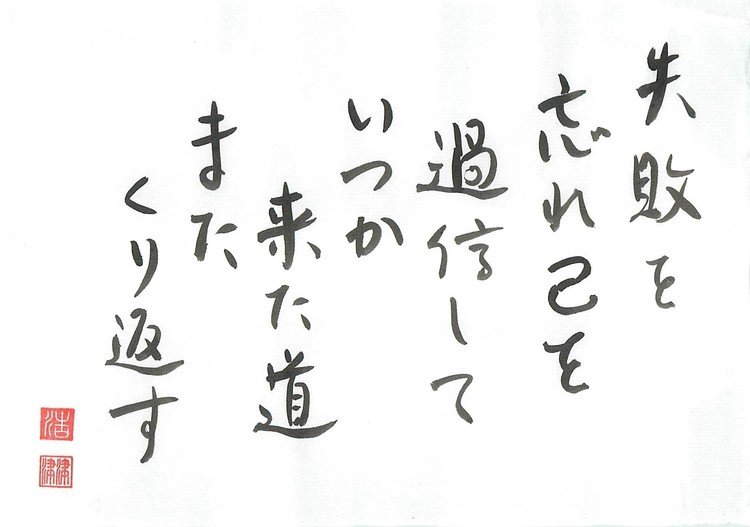 失敗を
忘れ己を
過信して
いつか
来た道
また
くり返す
浩